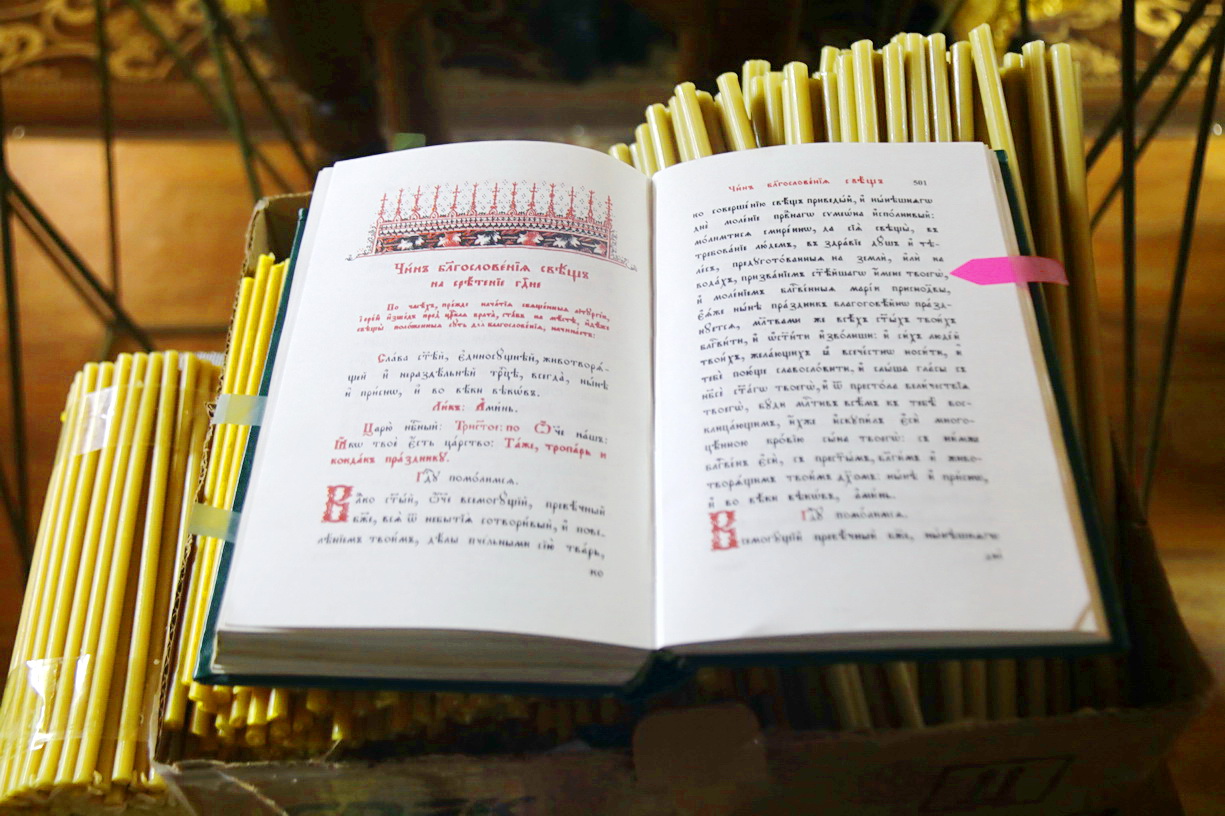 Чи́нъ бл҃гослове́нїѧ свѣ́щъ
на срѣ́тенїе гд҇не
По часѣ́хъ, пре́жде нача́тїѧ свѧще́нныѧ лїтꙋргі́и,
і҆ере́й и҆зше́дъ пред̾ ца̑рскаѧ врата̀, ста́въ на мѣ́стѣ, и҆дѣ́же
свѣщы̀ положє́ны сꙋ́ть длѧ̀ бл҃гослове́нїѧ, начина́етъ:
Сла́ва ст҃ѣ́й, є҆диносꙋ́щнѣй, животворѧ́-
щей и҆ нераздѣ́льнѣй трⷪ҇цѣ, всегда̀, ны́нѣ
и҆ при́снѡ, и҆ во вѣ́ки вѣкѡ́въ.
Ли́къ: А҆ми́нь.
Цр҃ю̀ нбⷭ҇ный: Трист҃о́е: по Ѻ҆́ч҃е на́шъ:
Ꙗ҆́кѡ твоѐ є҆́сть ца́рство: Та́же, тропа́рь и҆
конда́къ пра́здникꙋ.
Гдⷭ҇ꙋ помо́лимсѧ.
Влⷣко ст҃ы́й, ѻ҆́ч҃е всемогꙋ́щїй, превѣ́чный
бж҃е, всѧ̑ ѿ небытїѧ̀ сотвори́вый, и҆ пове-
лѣ́нїемъ твои́мъ, дѣ́лы пче́льными сїю̀ тва́рь,
ко
Чи́нъ бл҃гослове́нїѧ свѣ́щъ 501
ко соверше́нїю свѣ́щъ приведы́й, и҆ ны́нѣшнѧгѡ
днѐ моле́нїе првⷣнагѡ сѷмеѡ́на и҆спо́лнивый:
мо́лимтисѧ смире́ннѡ, да сїѧ̑ свѣщы̀, въ
тре́бованїе лю́демъ, въ здра́вїе дꙋ́шъ и҆ тѣ-
ле́съ, предꙋгото́ванныѧ на землѝ, и҆лѝ на
вода́хъ, призва́нїемъ ст҃ѣ́йшагѡ и҆́мене твоегѡ̀,
и҆ моле́нїемъ бл҃гослове́нныѧ марі́и приснодв҃ы,
є҆ѧ́же ны́нѣ пра́здникъ благоговѣ́йнѡ пра́зд-
нꙋетсѧ, мл҃твами же всѣ́хъ ст҃ы́хъ твои́хъ
бл҃гослови́ти, и҆ ѡ҆ст҃и́ти и҆зво́лиши: и҆ си́хъ люде́й
твои́хъ, жела́ющихъ ѧ҆̀ всече́стнѡ носи́ти, и҆
тебѐ пою́ще славосло́вити, и҆ слы́ша гла́сы съ
нб҃сѐ ст҃а́гѡ твоегѡ̀, и҆ ѿ престо́ла вели́чествїѧ
твоегѡ̀, бꙋ́ди млⷭ҇тивъ всѣ̑мъ къ тебѣ̀ вос-
клица́ющимъ, и҆̀хже и҆скꙋпи́лъ є҆сѝ много-
цѣ́нною кро́вїю сы́на твоегѡ̀: съ ни́мже
бл҃гослове́нъ є҆сѝ, съ прест҃ы́мъ, бл҃ги́мъ и҆ живо-
творѧ́щимъ твои́мъ дх҃омъ: ны́нѣ и҆ при́снѡ,
и҆ во вѣ́ки вѣкѡ́въ, а҆ми́нь.
Гдⷭ҇ꙋ помо́лимсѧ.
Всемогꙋ́щїй превѣ́чный бж҃е, ны́нѣшнѧгѡ
дни́